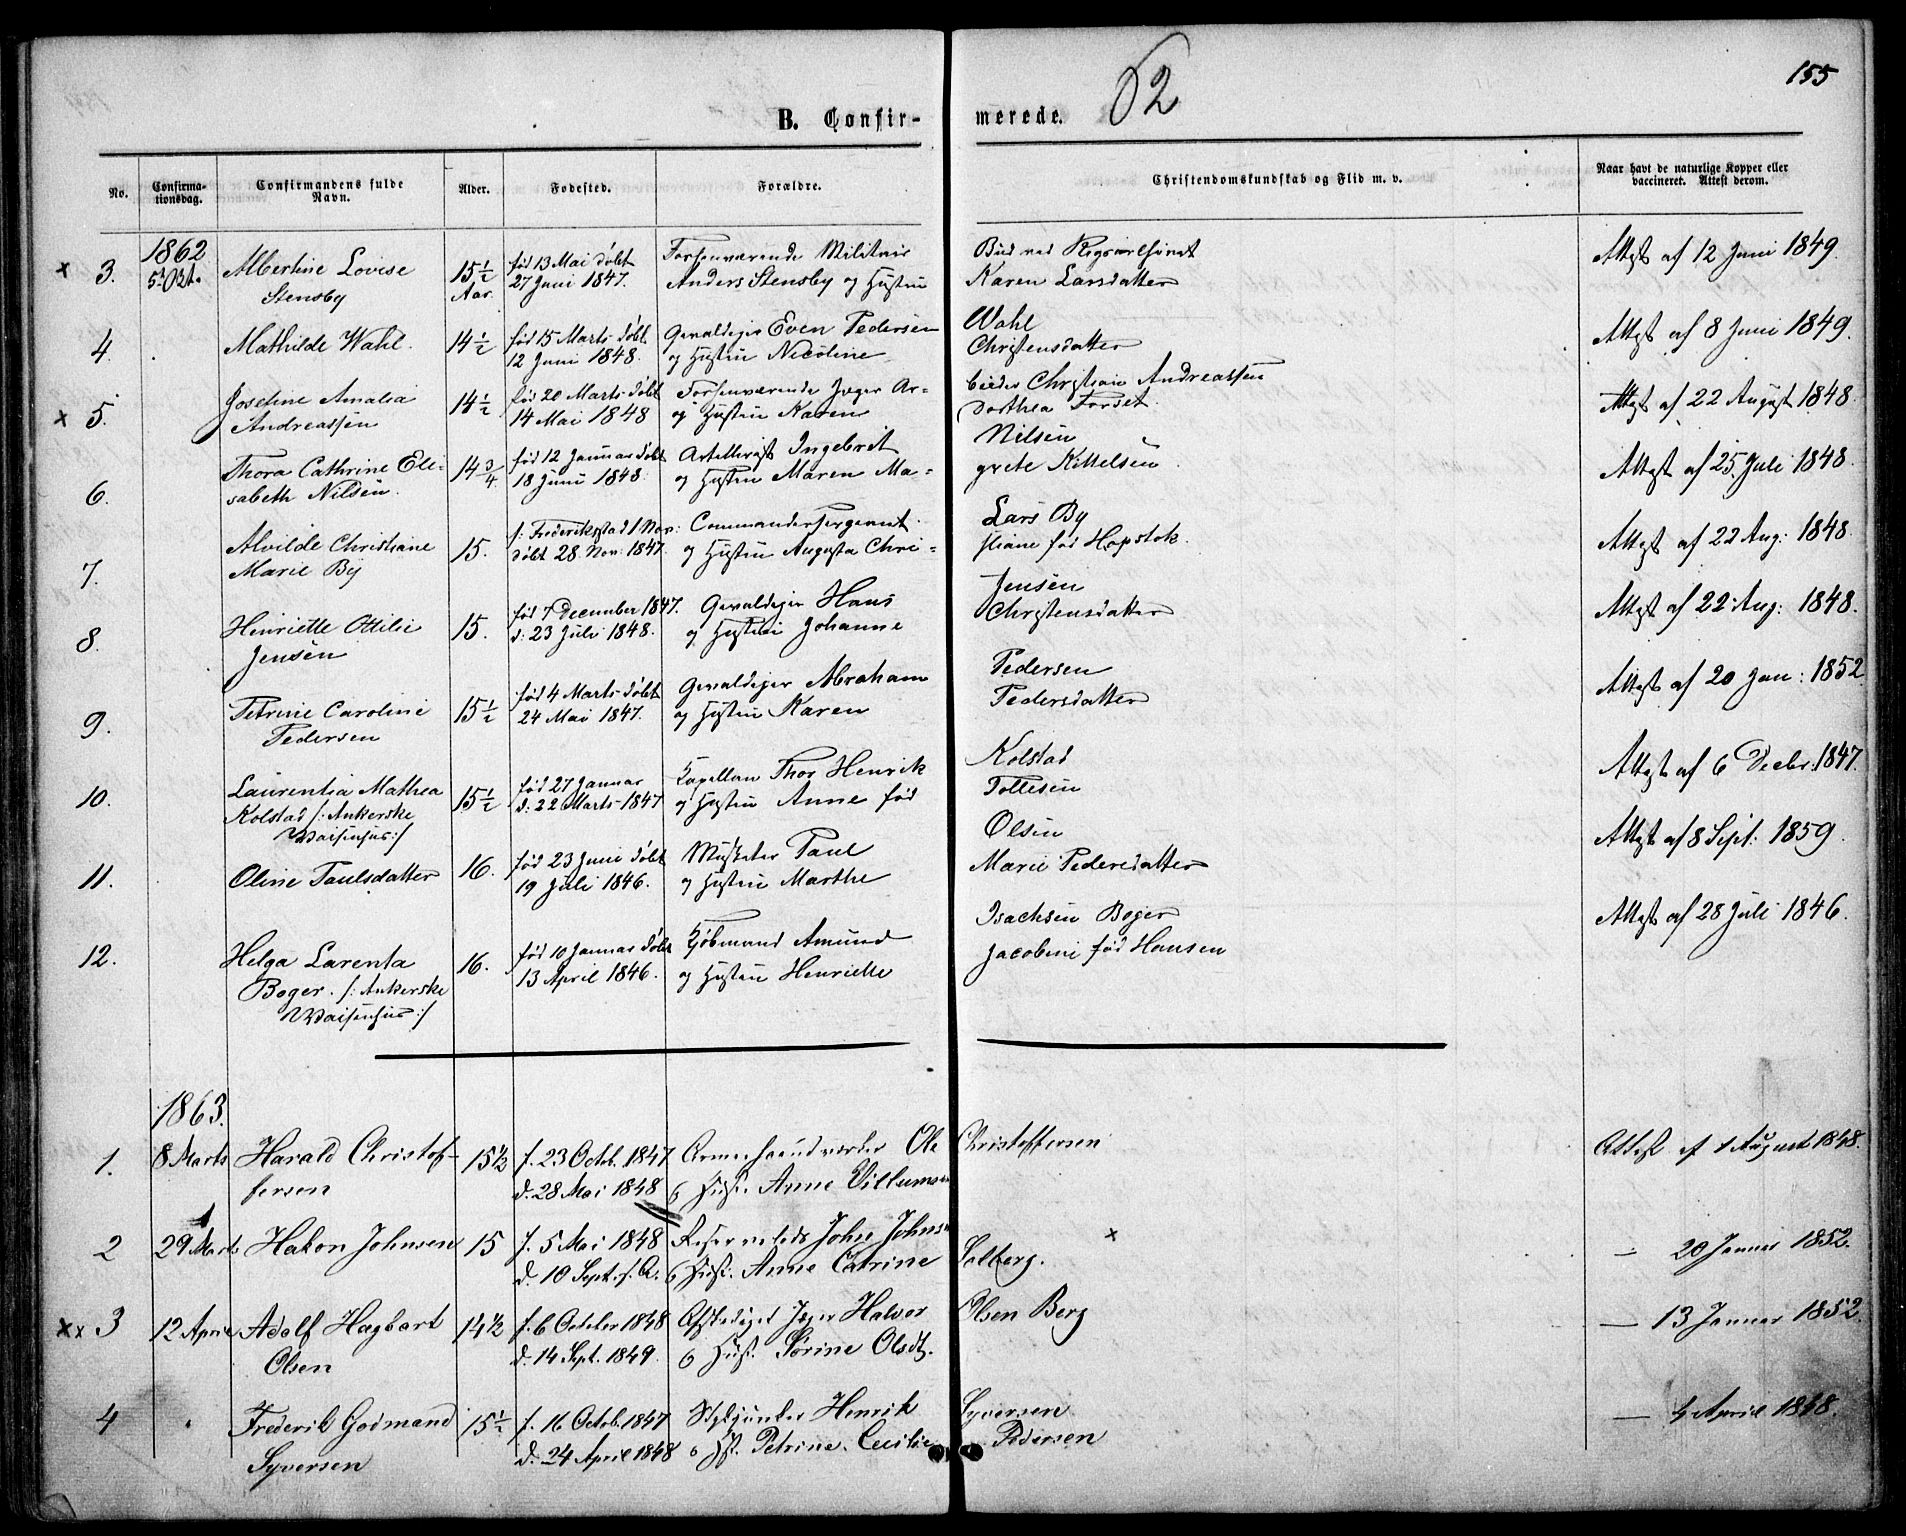 155
62
B. Confir- merede.
No. Confirma- tionsdag. Confirmandens fulde Navn. Alder. Fødested. Forældre. Christendomskundskab og Flid m. v. Naar havt de naturlige Kopper eller vaccineret. Attest derom.
1862
3. 5. Oktr. Albertine Lovise 15 1/2 Aar. født 13 Mai døbt Forhenværende Militair Bud ved Attest af 12 Juni 1849.
Stensby 27 Juni 1847. Anders Stensby og Hustru Karen Larsdatter
4. Mathilde Wahl. 14 1/2 født 15 Marts døbt Gevaldiger Even Pedersen Wahl Attest af 8 Juni 1849.
12 Juni 1848. og Hustru Nicoline Christensdatter
5. Josefine Amalia 14 1/2 født 20 Marts døbt Forhenværende Jæger Ar- beider Christian Andreassen Attest af 22 August 1848.
Andreassen 14 Mai 1848 og Hustru Karen Dorthea Forset.
6. Thora Cathrine Ele- 14 3/4 født 12 Januar døbt Artillerist Ingebrit Nilsen Attest af 25 Juli 1848.
sabeth Nilsen. 18 Juni 1848. og Hustru Maren Ma- grete Kittelsen
7. Alvilde Christiane 15. f: Frederiksstad 1 Nov: Commandersergeant Lars By Attest af 22 Aug: 1848.
Marie By døbt 28 Nov: 1847. og Hustru Augusta Chri- stiane født Hopstok.
8. Henriette Ottilie 15. født 7 December 1847. Gevaldiger Hans Jensen Attest af 22 Aug: 1848.
Jensen d: 23 Juli 1848. og Hustru Johanne Christensdatter
9. Petrine Caroline 15 1/2 født 4 Marts døbt Gevaldiger Abraham Pedersen Attest af 20 Jan: 1852.
Pedersen 24 Mai 1847. og Hustru Karen Pedersdatter
10. Laurentia Mathea 15 1/2 født 27 Januar Kapellan Thor Henrik Kolstad Attest af 6 Decbr. 1847.
Kolstad /: Ankerske d: 22 Marts 1847 og Hustru Anne født Tollesen
Waisenhus :/
11. Oline Paulsdatter 16. født 23 Juni døbt Musketer Paul Olsen Attest af 8 Sept: 1859.
19 Juli 1846. og Hustru Marthe Marie Pedersdatter
12. Helga Larenta 16. født 10 Januar døbt Kjøbmand Amund Isachsen Boger Attest af 28 Juli 1846.
Boger. /: Ankerske 13 April 1846. og Hustru Henriette Jacobine født Hansen
Waisenhus :/
1863.
1. 8 Marts Harald Christof- 15 1/2 f. 23 Octob. 1847 Ole Christoffersen Attest af 1 August 1848.
fersen d. 28 Mai 1848 o Hust. Anne Villumsen
2 29 Marts Hakon Johnsen 15 f. 5 Mai 1848 John Johnsen x — 20 Januar 1852.
d. 10 Sept. s. A. o Hust. Anne Catrine Solberg.
xx 3 12 April Adolf Hagbart 14 1/2 f. 6 October 1848 Afskediget Jæger Halvor Olsen Berg — 13 Januar 1852.
Olsen d. 14 Sept. 1849. o Hust. Sørine Olsdtr.
4 Frederik Godmand 15 1/2 f. 16 Octob. 1847 Stykjunker Henrik Syversen — 4 April 1848.
Syversen d. 24 April 1848 o Hst. Petrine Cecilie Pedersen